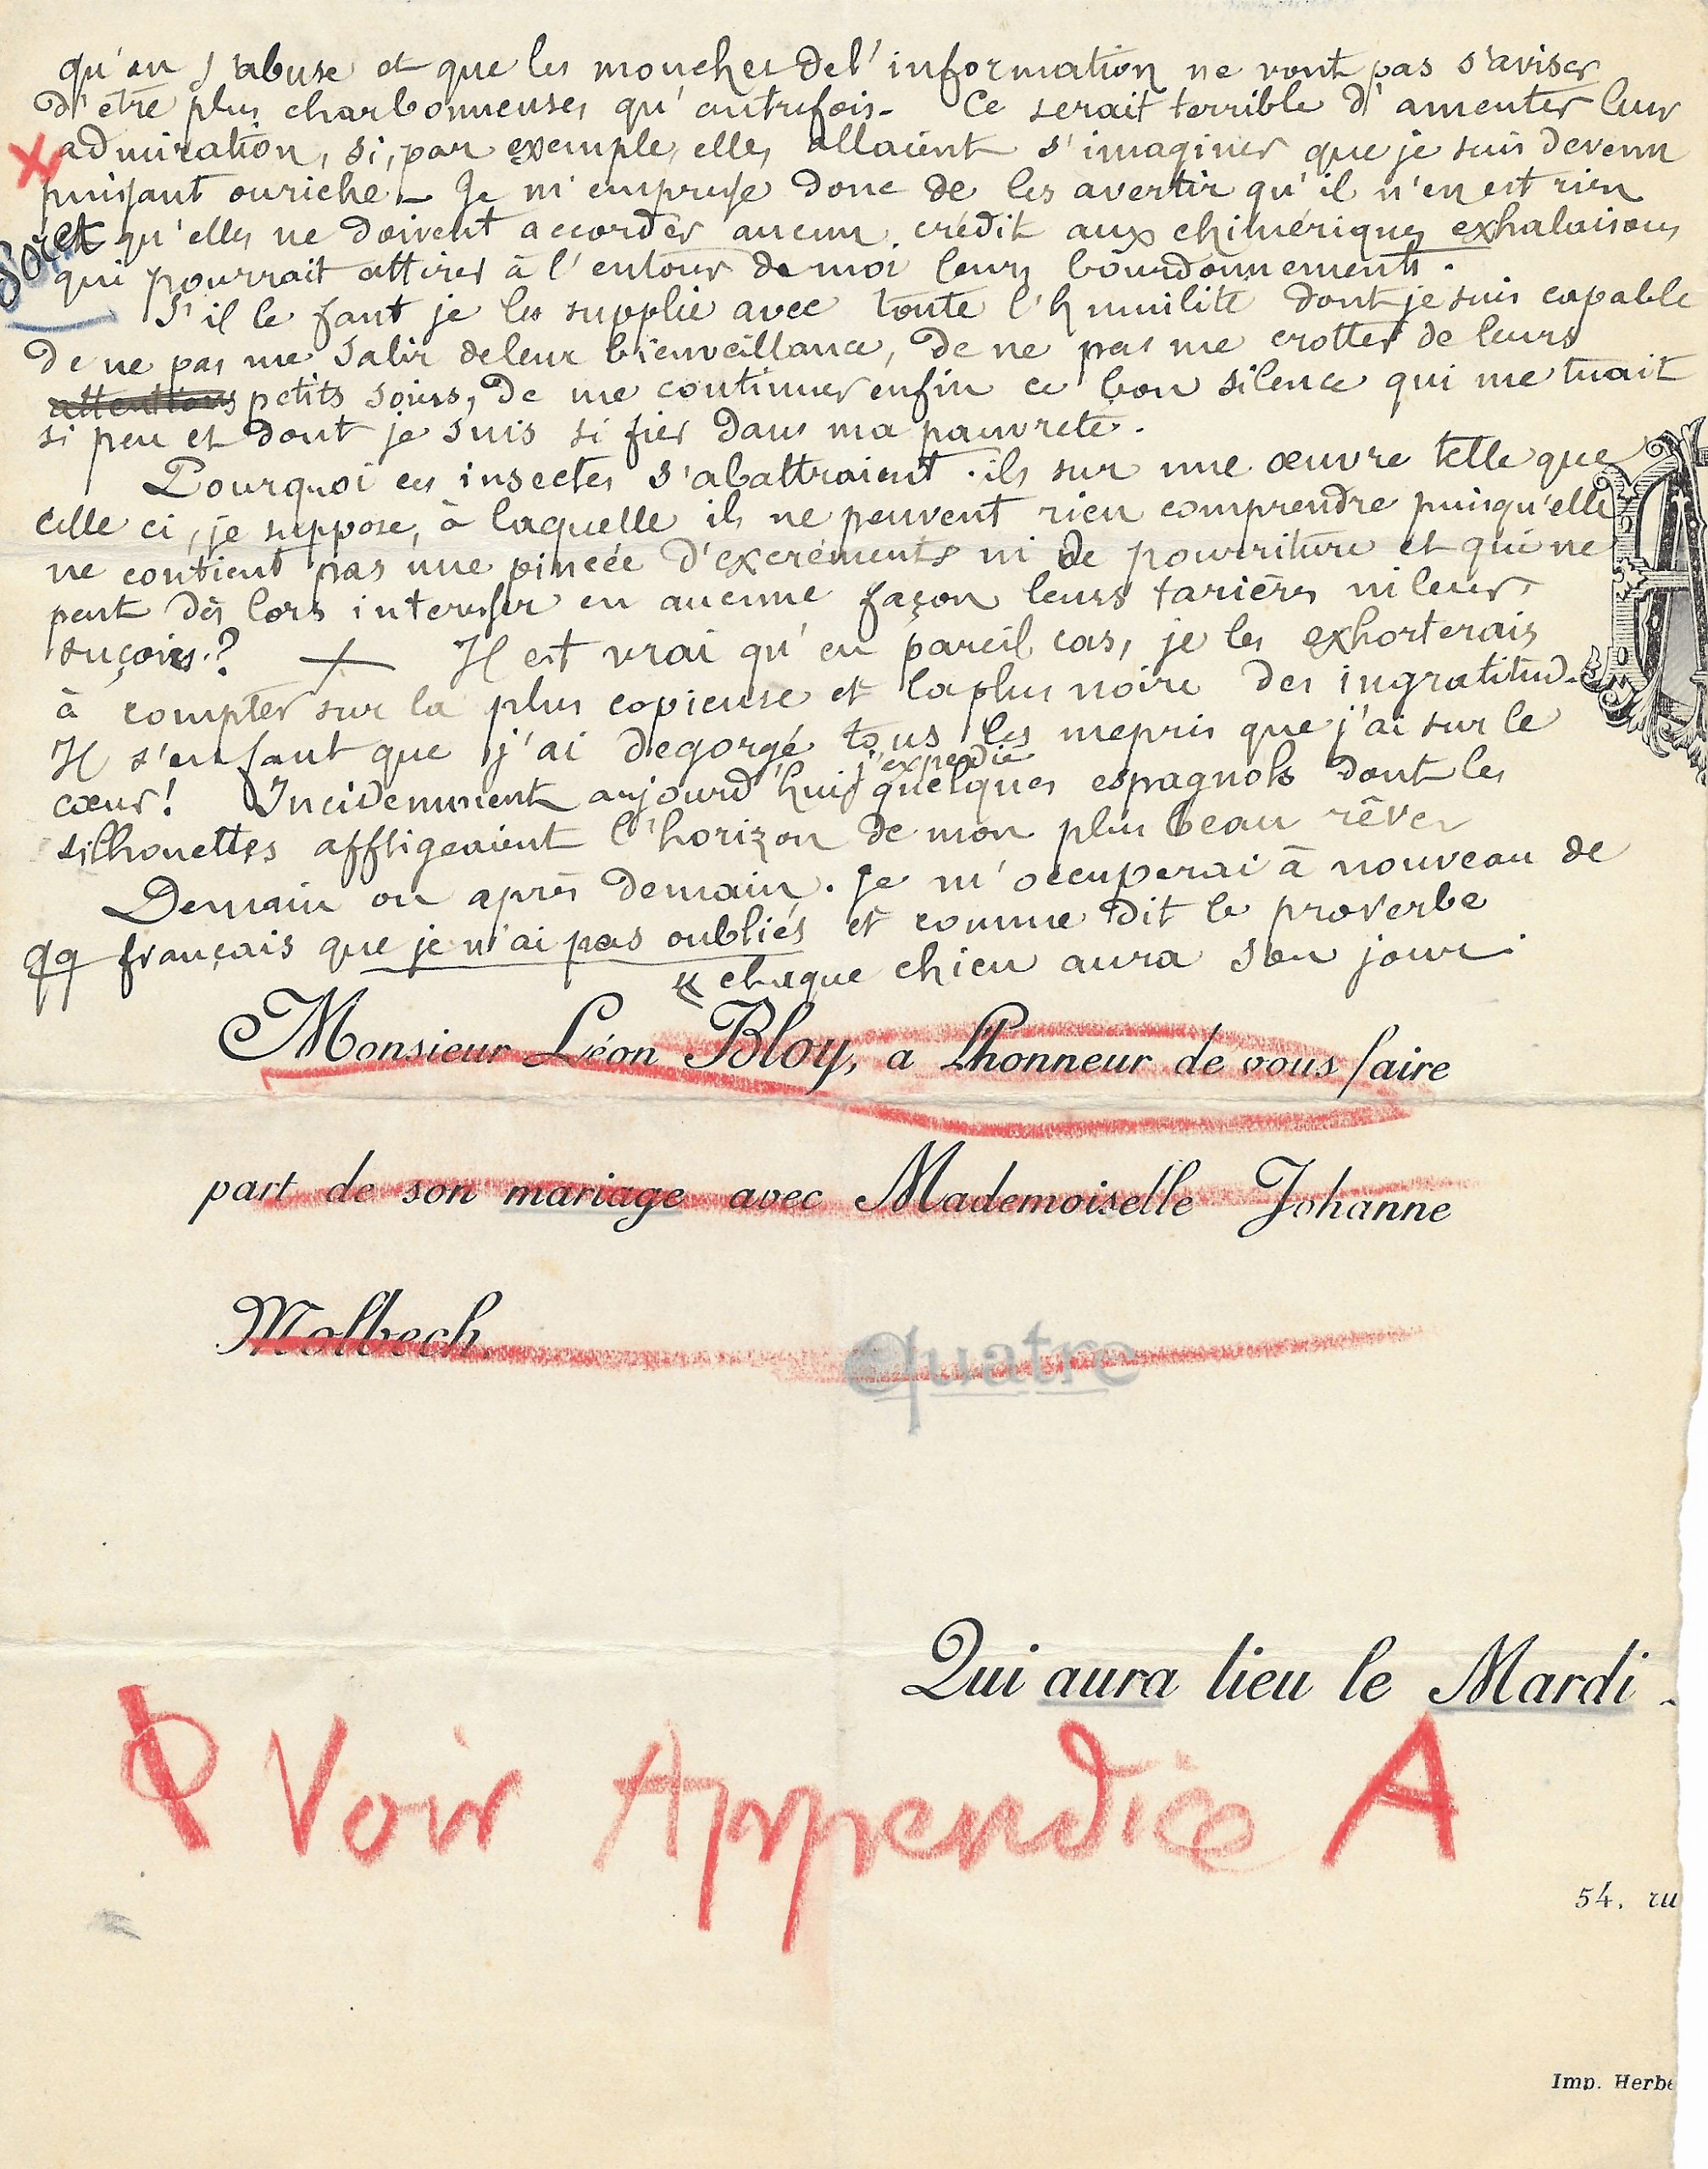 qu'on s'abuse et que les mouches de l'information ne vont pas s'aviser
d'être plus charbonneuses qu'autrefois - Ce serait terrible d'ameuter leur
X admiration, si, par exemple, elles allaient s'imaginer que je suis devenu
puissant ou riche - Je m'empresse donc de les avertir qu'il n'en est rien
et qu'elles ne doivent accorder aucun crédit aux chimériques exhalaisons
qui pourrait attirer à l'entour de moi leurs bourdonnements.
S'il le faut je les supplie avec toute l'humilité dont je suis capable
de ne pas me salir de leur bienveillance, de ne pas me crotter de leurs
attentions petits soins, de me continuer enfin ce bon silence qui me tuait
si peu et dont je suis si fier dans ma pauvreté.
Pourquoi ces insectes s'abattraient-ils sur une œuvre telle que
celle ci, je suppose, à laquelle ils ne peuvent rien comprendre puisqu'elle
ne contient pas une pincée d'excréments ni de pourriture et qui ne
peut dès lors interesser en aucune façon leurs tarières ni leurs
suçoirs? + Il est vrai qu'en pareil cas, je les exhorterais
à compter sur la plus copieuse et la plus noire des ingratitud.
Il s'en faut que j'ai degorgé tous les mepris que j'ai sur le
j'expedie
cœur! Incidemment aujourd'hui quelques espagnols dont les
silhouettes affligeaient l'horizon de mon plus beau rêve
Demain ou après demain. Je m'occuperai à nouveau de
qq français que je n'ai pas oubliés et comme dit le proverbe
" chaque chien aura son jour.
Monsieur Léon Bloy, a l'honneur de vous faire
part de son mariage avec Mademoiselle Johanne
Molbech.
Quatre
Qui aura lieu le Mardi
Voir Appendice A
54, ru
Imp. Herbe